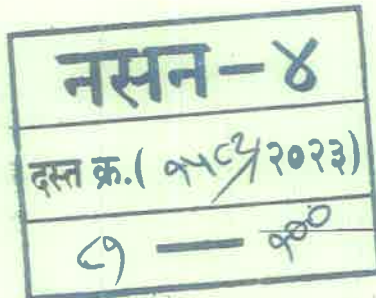 नसन-४
दस्त क्र.( १५८२/२०२३)
८१ — १००